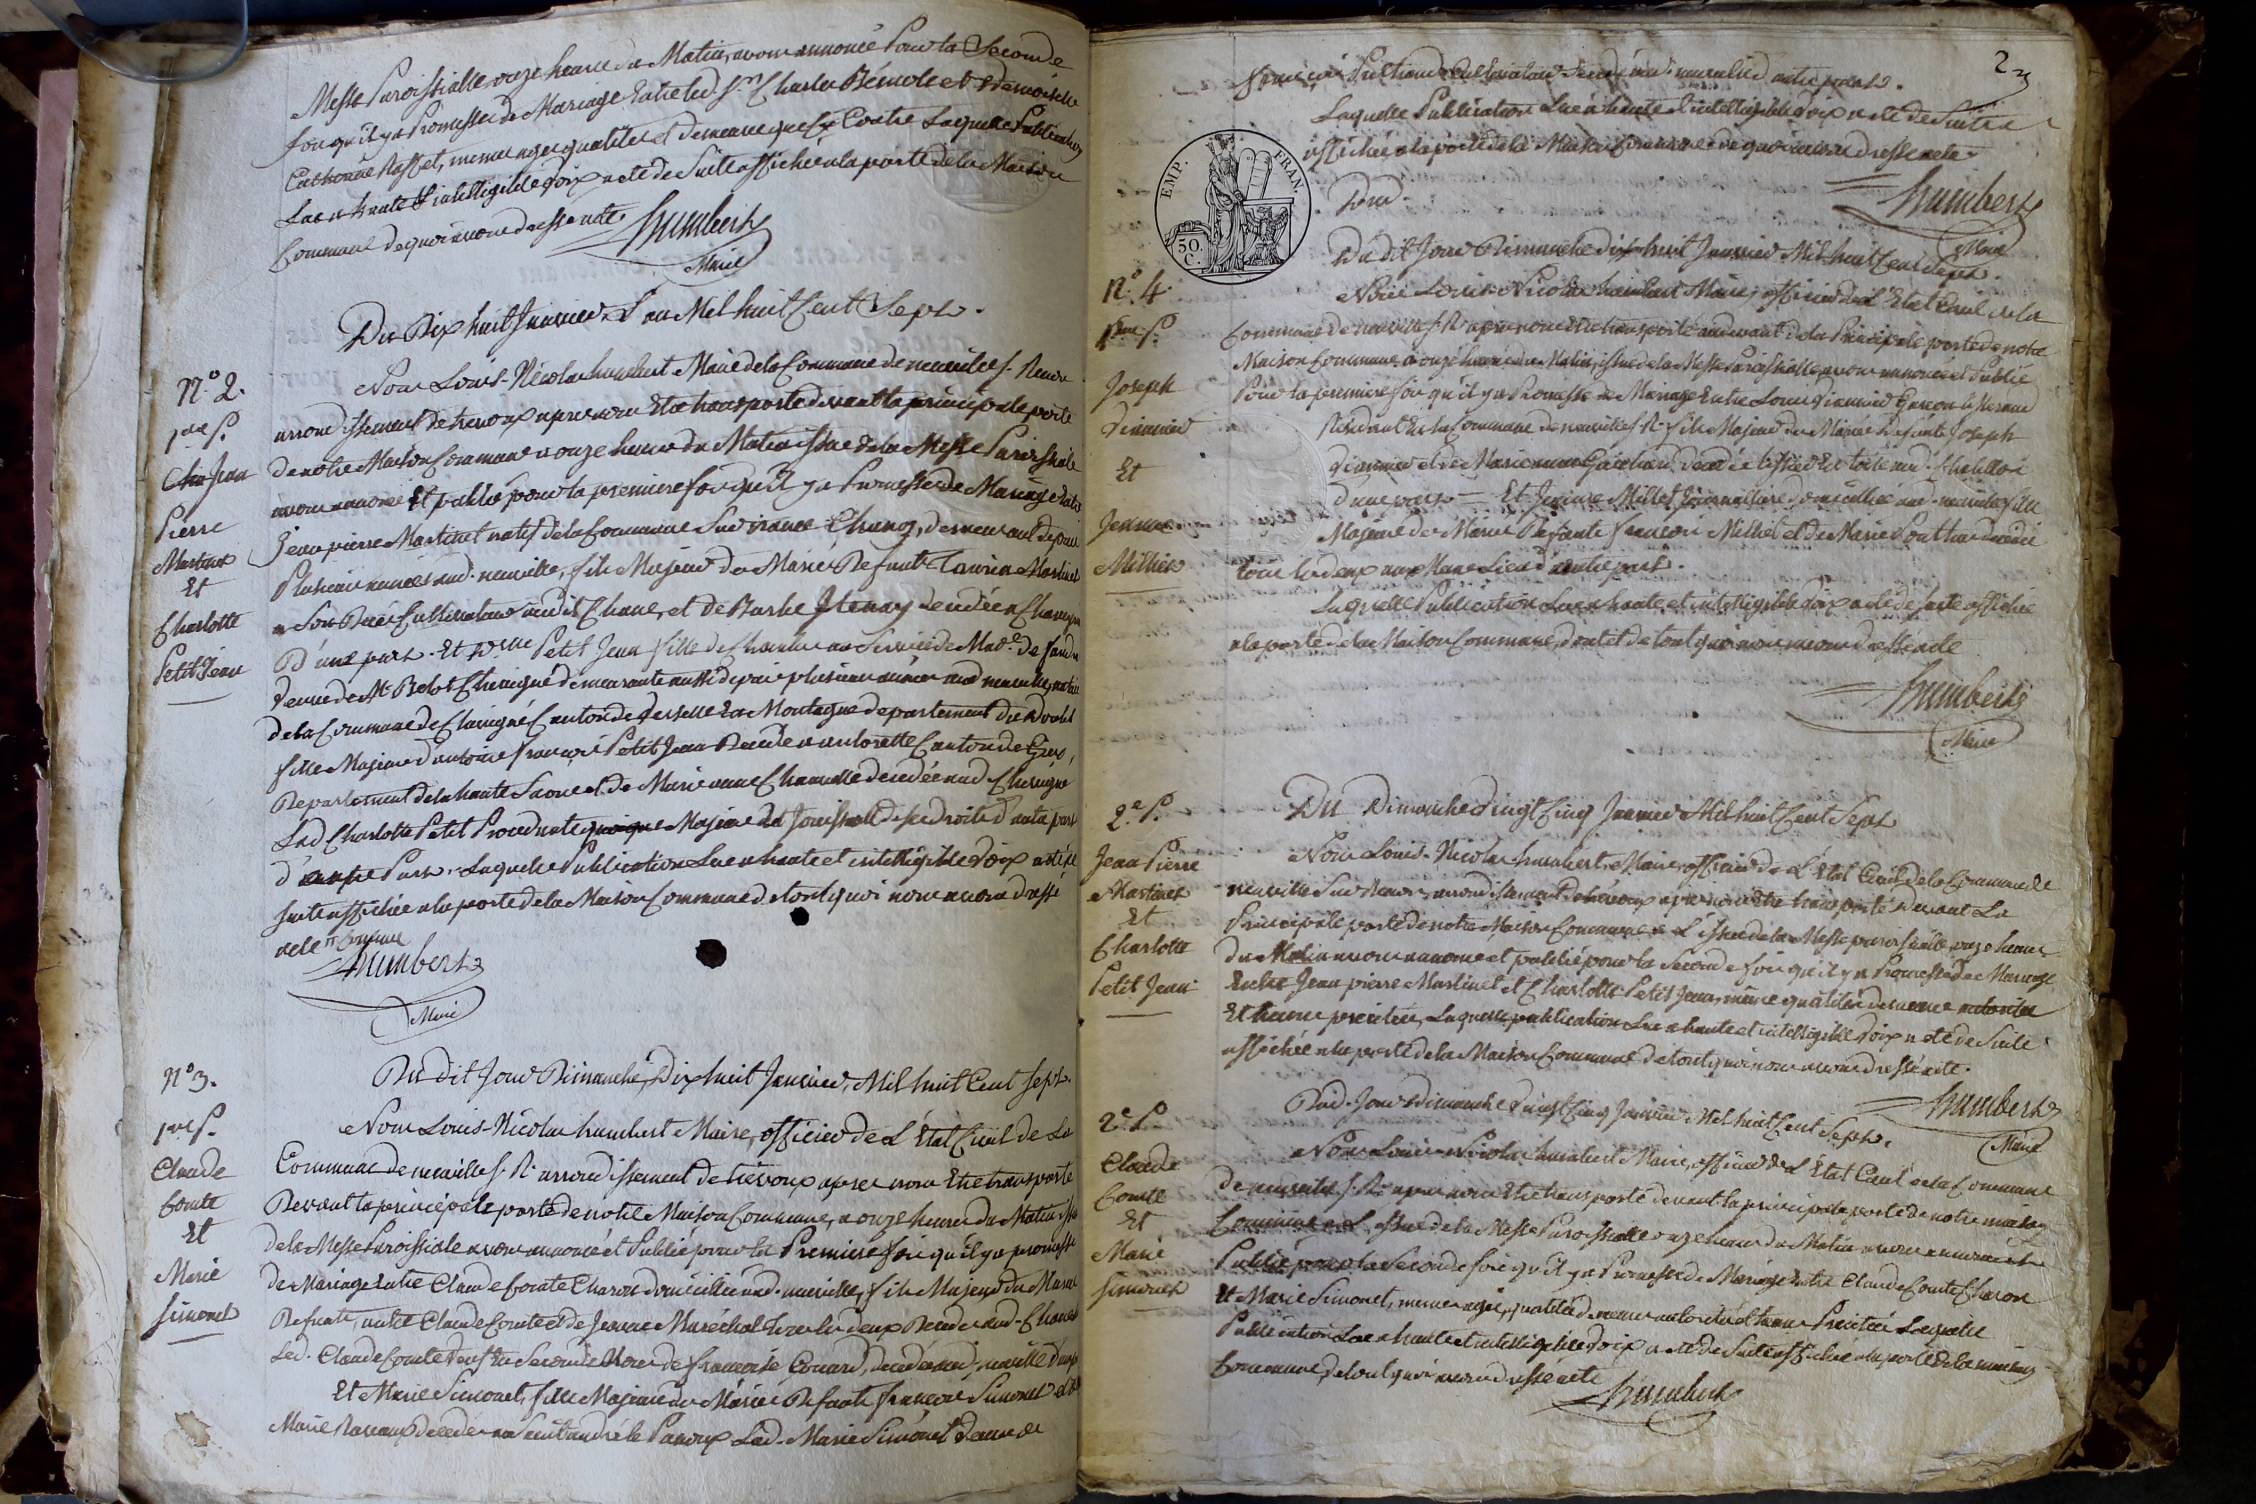 Messe Paroissialle, onze heures du Matin, avons annoncé Pour la Seconde
fois qu'il y a Promesses de Mariage Entre led. Sr. Charles Bémole et Demoiselle
Catherine Raffet, memes ages qualités et demeures que Ci Contre Laquelle Publication
Lue a haute & intelligible Voix a été de Suite affichée a la porte de la Maison
Commune de quoi avons dressé acte. Humbert
Maire
Du Dix huit Janvier L'an Mil huit Cent Sept.
N.o 2.
1ere P.
Jean
Pierre
Martinet
Et
Charlotte
Petit Jean
Nous Louis-Nicolas humbert Maire de la Commune de neuville s. Renon
arrondissement de trevoux apres nous Etre transporté devant la principale porte
de notre Maison Commune a onze heures du Matin issue de la Messe Paroissiale
avons annoncé Et publié pour la premiere fois qu'il y a Promesses de Mariage Entre
Jean pierre Martinet natif de la Commune Sur irance Chanoz, demeurant depuis
Plusieurs années aud. neuville, fils Majeur du Marié Defunt Martinet
a Son Décés Cultivateur aud. Chane, et de Barbe Decedée a
D'une part. Et Petit Jean fille de Chambre au Service de Mad.e de
Veuve de Mr. Belot Chevigné demeurante aussi depuis plusieurs années aud neuville, native
de la Commune de Canton de La Montagne departement du Doubs
fille Majeure d'antoine françois Petit Jean Decedé a autorette Canton de Grex,
Departement de la haute Saone et de Marie anne decedée aud Chevigné
Lad Charlotte Petit Procedante Majeure Et Jouissante de ses droits d'autre part
d'autre Part. Laquelle Publication Lue a haute et intelligible Voix a été de
suite affichée a la porte de la Maison Commune de tout quoi nous avons dressé
acte
Humbert
Maire
N.o 3.
1ere P.
Claude
Comte
Et
Marie
Simonet
Du dit Jour Dimanche, Dix huit Janvier, Mil huit Cent Sept.
Nous Louis-Nicolas humbert Maire, officier de L'Etat Civil de La
Commune de neuville s. R. arrondissement de trévoux apres nous Etre transporté
Devant la principale porte de notre Maison Commune, a onze heures du Matin issue
de la Messe Paroissiale avons annoncé et Publié pour la Premiere fois qu'il y a promesse
de Mariage Entre Claude Comte Charon domicilié aud. neuville, fils Majeur du Marié
Defunt, autre Claude Comte et de Jeanne Maréchal tous les deux Decedés aud.
Led. Claude Comte Veuf En Seconde Noces de françoise Decedée aud. neuville d'une part
Et Marie Simonet, fille Majeure du Marié Defunt françois Simonet et de
Marie decedés a Saint andré le Panoux Lad. Marie Simonet Veuve de
2
Cultivateur Decedé aud. neuville d'autre part.
Laquelle Publication Lue a haute & intelligible Voix a été de Suite
affichée a la porte de la Maison Commune de quoi avons dressé acte
EMP. FRAN.
50. C.
Humbert
Maire
Du dit Jour Dimanche dix huit Janvier Mil huit Cent Sept.
N.o 4.
1ere P.
Joseph
Et
Jeanne
Millet
Nous Louis-Nicolas humbert Maire, officier de L'Etat Civil de la
Commune de neuville s. R. apres nous Etre transporté au devant de la Principale porte de notre
Maison Commune a onze heures du Matin, issue de la Messe Paroissialle, avons annoncé et Publié
Pour la premiere fois qu'il y a Promesse de Mariage Entre Louis Garçon
Résidant En la Commune de neuville s. R. fils Majeur du Marié Defunt Joseph
et de Marie anne decedée
d'une part — Et Jeanne Millet domiciliée aud. neuville fille
Majeure du Marié Defunt françois Millet et de Marie
tous les deux aux Mans Lieu d'autre part.
Laquelle Publication Lue a haute et intelligible Voix a été de suite affichée
a la porte de la Maison Commune, dont et de tout quoi nous avons dressé acte
Humbert
Maire
Du Dimanche Vingt Cinq Janvier Mil huit Cent Sept
2.e P.
Jean Pierre
Martinet
Et
Charlotte
Petit Jean
Nous Louis-Nicolas humbert, Maire, officier de L'Etat Civil de la Commune de
neuville Sur Renon, arrondissement de trévoux apres nous Etre transporté devant La
Principale porte de notre Maison Commune a L'issue de la Messe paroissialle, onze heures
du Matin avons annoncé et publié pour la Seconde fois qu'il y a Promesses de Mariage
Entre Jean pierre Martinet et Charlotte Petit Jean, même qualités demeure autorités
Et heures precitées, Laquelle publication Lue a haute et intelligible Voix a été de Suite
affichée a la porte de la Maison Commune de tout quoi nous avons dressé acte.
Humbert
Maire
Dud. Jour Dimanche Vingt Cinq Janvier Mil huit Cent Sept.
2.e P.
Claude
Comte
Et
Marie
Simonet
Nous Louis-Nicolas humbert Maire, officier de L'Etat Civil de la Commune
de neuville s. R. apres nous Etre transporté devant la principale porte de notre maison
Commune a L'issue de la Messe Paroissialle onze heures du Matin avons annoncé et
Publié pour la Seconde fois qu'il y a Promesse de Mariage Entre Claude Comte Charon
Et Marie Simonet, memes ages, qualités demeure autorités et heures Precitées Laquelle
Publication Lue a haute et intelligible Voix a été de Suite affichée a la porte de la maison
Commune, de tout quoi avons dressé acte
Humbert